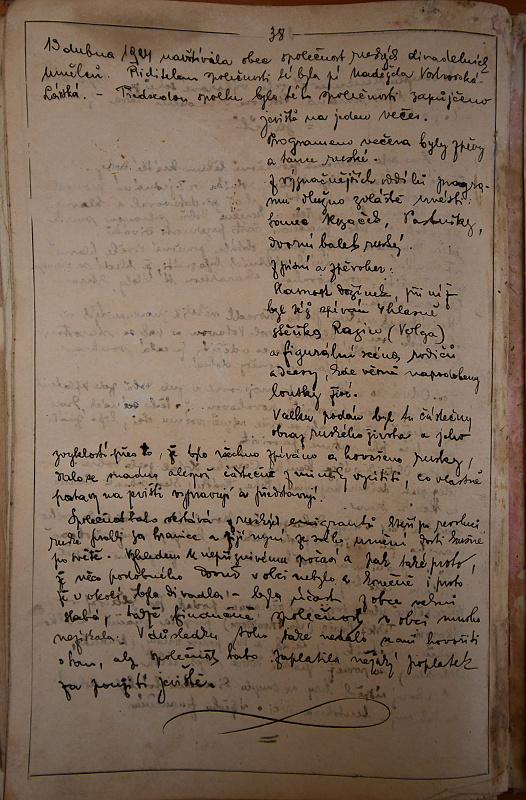 38
13 dubna 1924 navštívila obec společnost ruských divadelních
umělců. Ředitelem společnosti té byla pí Naděžda
Lárská. – Předsedou spolku bylo této společnosti zapůjčeno
jeviště na jeden večer.
Programem večera byly zpěvy
a tance ruské.
Z význačnějších oddílů progra-
mu dlužno zvláště uvésti:
tanec kozáček,
dvorní balet ruský.
Z písní a zpěvoher:
Slavnost dožínek, při níž
byl též zpíván 4hlasně
Stěnka Razin (Volga)
a figurální scéna rodičů
a dcery, kde věrně napodobeny
loutky živé.
Vcelku podán byl tu částečný
obraz ruského života a jeho
zvyklostí přes to, že bylo všechno zpíváno a hovořeno rusky,
dalo se snadno alespoň částečně z mimiky vycítiti, co vlastně
postavy na jevišti vypravují a představují.
Společnost tato sestává z ruských emigrantů kteří po revoluci
ruské prchli za hranice a živí nyní ze svého umění dosti bídně
po světě. Vzhledem k nepříznivému počasí a pak také proto,
že něco podobného dosud v obci nebylo a konečně i proto
že v okolí bylo divadlo – byla účast z obce velmi
slabá, takže finančně společnost v obci mnoho
nezískala. V důsledku toho také nedalo se ani hovořiti
o tom, aby společnost tato zaplatila nějaký poplatek
za použití jeviště.